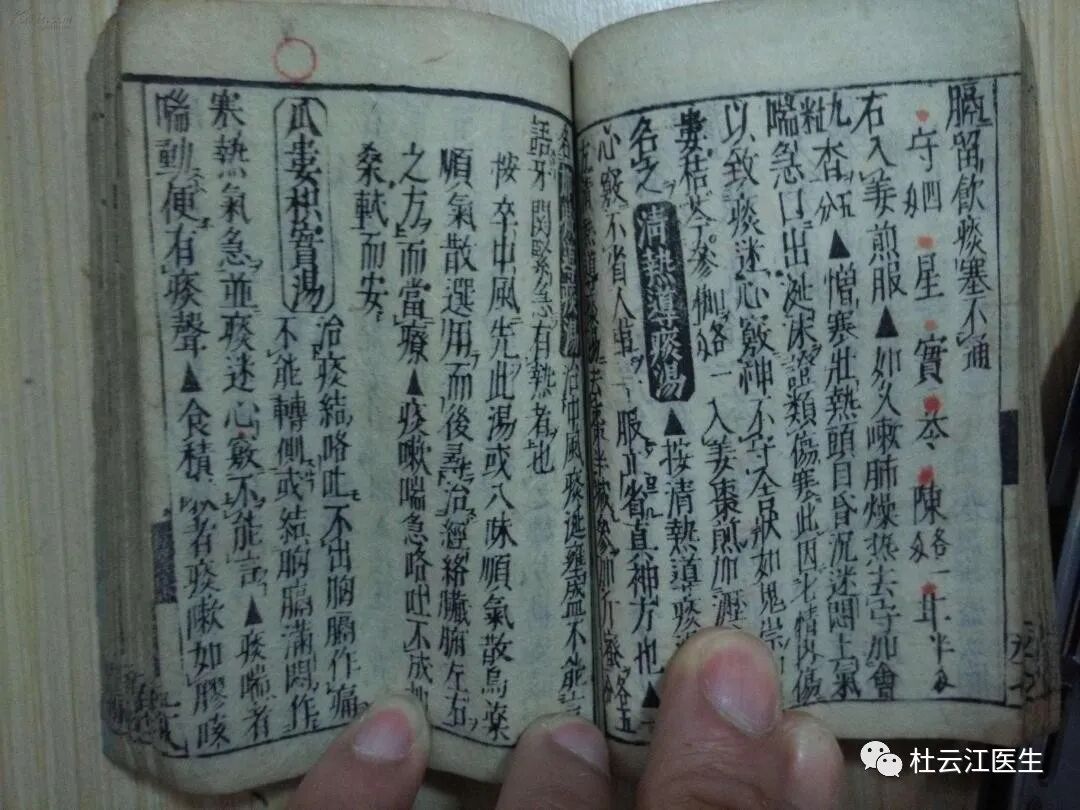 膈留飲痰塞不通
守四 星 實 苓 陳各一 半
右入姜煎服▲如久嗽肺燥热去守加會
九杏五分▲憎寒壯熱頭目昏沉迷悶上氣
喘急口出涎沫證類傷寒此因七情内傷
以致痰迷心竅神不守舍狀如鬼祟
婁桔芩參 各一 入姜棗煎加瀝
名之清熱導痰湯▲按清熱導痰
心竅不省人事 服 省真神方也▲
治中風痰涎雖盛不能言
語牙関緊急有熱者也
按卒中風先此湯或八味順氣散烏薬
順氣散選用而後尋治經絡臓腑左右
之方而當療▲痰嗽喘急咯吐不成
桑軾而安
瓜婁枳實湯
治痰結咯吐不出胸膈作痛
不能轉側或結胸膈滿悶作
寒熱氣急並痰迷心竅不能言▲痰喘者
喘動便有痰聲▲食積 者痰嗽如膠咳
杜云江医生